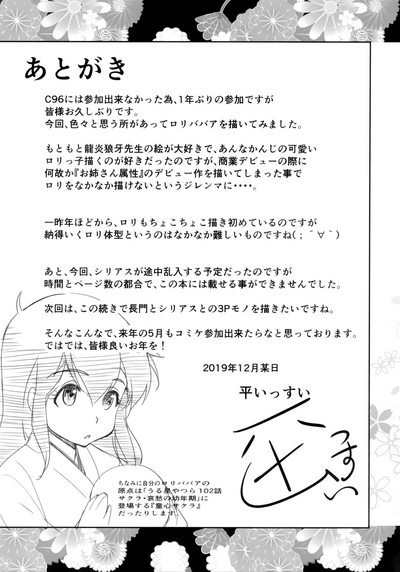 あとがき
C96には参加出来なかった為、1年ぶりの参加ですが
皆様お久しぶりです。
今回、色々と思う所があってロリババアを描いてみました。
もともと龍炎狼牙先生の絵が大好きで、あんなかんじの可愛い
ロリっ子描くのが好きだったのですが、商業デビューの際に
何故か『お姉さん属性』のデビュー作を描いてしまった事で
ロリをなかなか描けないというジレンマに・・・・。
一昨年ほどから、ロリもちょこちょこ描き初めているのですが
納得いくロリ体型というのはなかなか難しいものですね(；´∀｀)
あと、今回、シリアスが途中乱入する予定だったのですが
時間とページ数の都合で、この本には載せる事ができませんでした。
次回は、この続きで長門とシリアスとの3Pモノを描きたいですね。
そんなこんなで、来年の5月もコミケ参加出来たらなと思っております。
ではでは、皆様良いお年を！
2019年12月某日
平いっすい
平
っすい
ちなみに自分のロリババアの
原点は「うる星やつら102話
サクラ・哀愁の幼年期」に
登場する『童心サクラ』
だったりします